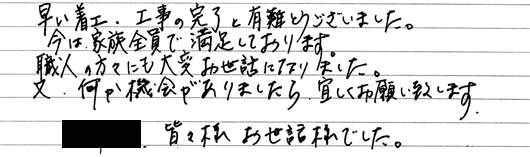 早い着工、工事の完了と有難とうございました。
今は家族全員で満足しております。
職人の方々にも大変お世話になりました。
又、何か機会がありましたら、宜しくお願い致します。
皆々様 お世話様でした。